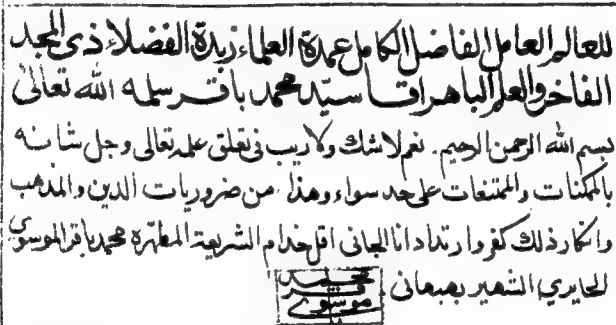 للعالم العامل الفاضل الكامل عمدة العلماء زبدة الفضلاء ذي المجد
الفاخر والعلم الباهر اقا سيّد محمد باقر سلمه الله تعالى
بسم الله الرحمن الرحيم. نعم لا شك ولا ريب في تعلق علمه تعالى وجل شانه
بالممكنات والممتنعات على حد سواء وهذا من ضروريات الدين والمذهب
وانكار ذلك كفر وارتداد انا الجاني اقل خدام الشريعة المطهّرة محمد باقر الموسوي
الحايري الشهير ببهبهاني
محمد
باقر
موسوي